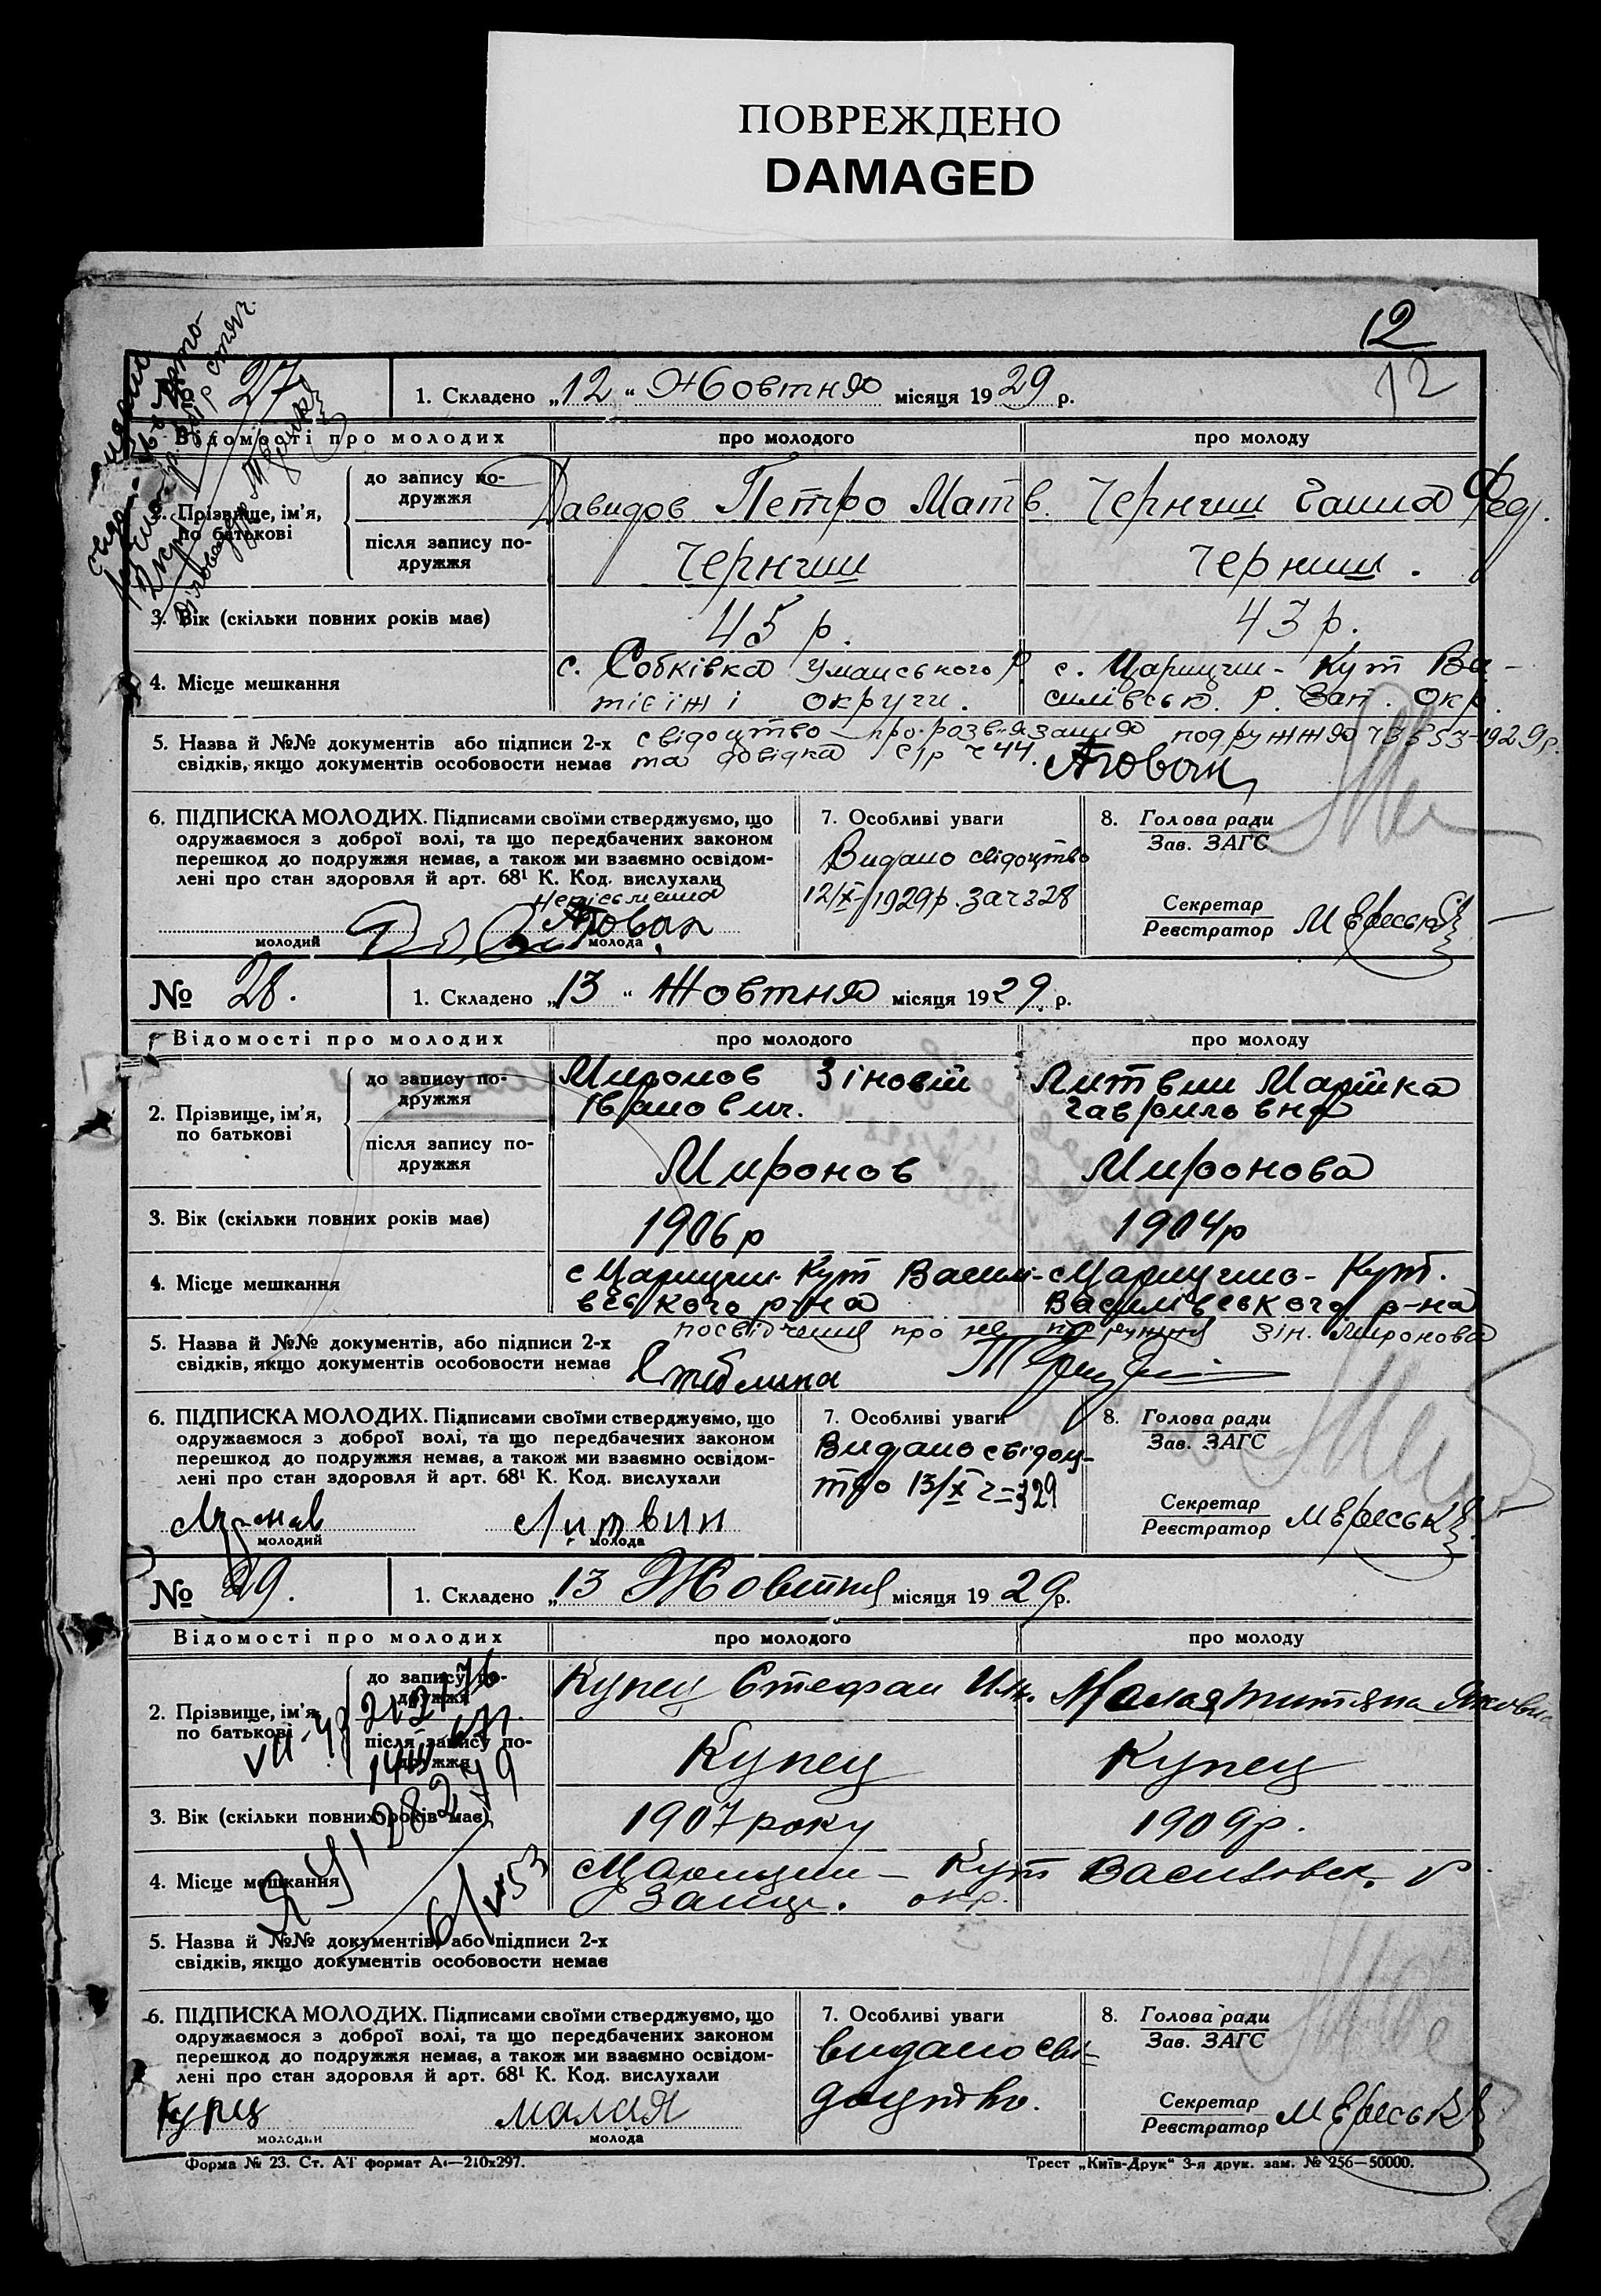 ПОВРЕЖДЕНО
DAMAGED
12
12
№ 27
1. Складено „12“ Жовтня місяця 1929 р.
Відомості про молодих
про молодого
про молоду
2. Прізвище, ім'я,
по батькові
до запису по-
дружжя
Давидов Петро Матв.
Черниш Ганна Фед.
після запису по-
дружжя
Черниш
Черниш.
3. Вік (скільки повних років має)
45 р.
43 р.
4. Місце мешкання
с. Собківка Уманського Р.
тієїж і округи.
с. Царицин-Кут Ва-
силівськ. Р. Зап. Окр.
5. Назва й №№ документів або підписи 2-х
свідків, якщо документів особовости немає
свідоцтво про розвязання подружжя
та довідка с/р ч 44.
6. ПІДПИСКА МОЛОДИХ. Підписами своїми стверджуємо, що
одружаємося з доброї волі, та що передбачених законом
перешкод до подружжя немає, а також ми взаємно освідом-
лені про стан здоровля й арт. 68¹ К. Код. вислухали
неписьменна
молодий
молода
7. Особливі уваги
Видано свідоцтво
12/X-1929р. за ч 328
8. Голова ради
Зав. ЗАГС
Секретар
Реєстратор
№ 28.
1. Складено „13“ Жовтня місяця 1929 р.
Відомості про молодих
про молодого
про молоду
2. Прізвище, ім'я,
по батькові
до запису по-
дружжя
Миронов Зіновій
Іванович.
Литвин Марійка
Гавриловна
після запису по-
дружжя
Миронов
Миронова
3. Вік (скільки повних років має)
1906р
1904р
4. Місце мешкання
с Царицин-Кут Василі-
вського р-на
с Царицино-Кут.
Василівського р-на
5. Назва й №№ документів, або підписи 2-х
свідків, якщо документів особовости немає
посвідчення про Зін. Миронова
6. ПІДПИСКА МОЛОДИХ. Підписами своїми стверджуємо, що
одружаємося з доброї волі, та що передбачених законом
перешкод до подружжя немає, а також ми взаємно освідом-
лені про стан здоровля й арт. 68¹ К. Код. вислухали
молодий
Литвин
молода
7. Особливі уваги
Видано свідоц-
тво 13/X ч=329
8. Голова ради
Зав. ЗАГС
Секретар
Реєстратор
№ 29.
1. Складено „13 Жовтня місяця 1929р.
Відомості про молодих
про молодого
про молоду
2. Прізвище, ім'я,
по батькові
до запису по-
дружжя
Купец Стефан Ил.
Малая Титяна Яковл
після запису по-
дружжя
Купец
Купец
3. Вік (скільки повних років має)
1907 року
1909р.
4. Місце мешкання
с Царицин-Кут Василовск. р
Запор. окр.
5. Назва й №№ документів, або підписи 2-х
свідків, якщо документів особовости немає
6. ПІДПИСКА МОЛОДИХ. Підписами своїми стверджуємо, що
одружаємося з доброї волі, та що передбачених законом
перешкод до подружжя немає, а також ми взаємно освідом-
лені про стан здоровля й арт. 68¹ К. Код. вислухали
Купец
молодий
малая
молода
7. Особливі уваги
видано сві-
доцтво.
8. Голова ради
Зав. ЗАГС
Секретар
Реєстратор
Форма № 23. Ст. АТ формат А4—210х297.
Трест „Київ-Друк“ 3-я друк. зам. № 256—50000.